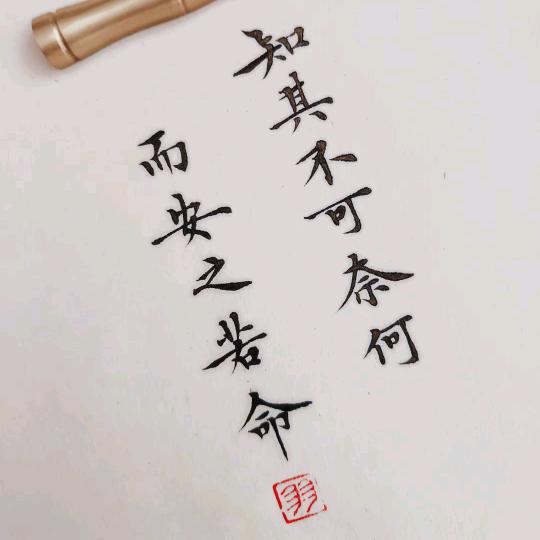 知其不可奈何
而安之若命
羽